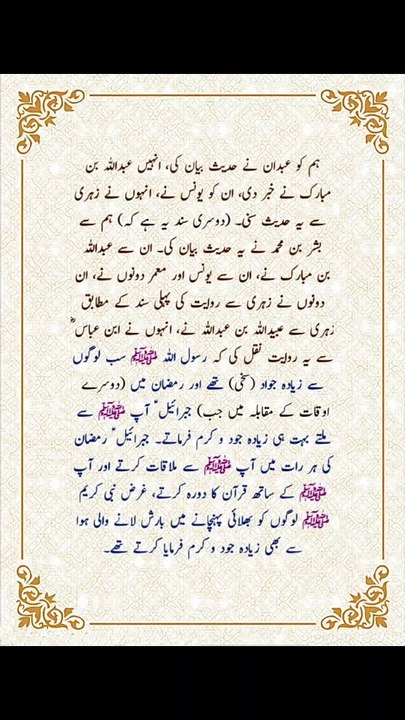 ہم کو عبدان نے حدیث بیان کی، انہیں عبداللہ بن
مبارک نے خبر دی، ان کو یونس نے، انہوں نے زہری
سے یہ حدیث سنی۔ (دوسری سند یہ ہے کہ) ہم سے
بشر بن محمد نے یہ حدیث بیان کی۔ ان سے عبداللہ
بن مبارک نے، ان سے یونس اور معمر دونوں نے، ان
دونوں نے زہری سے روایت کی پہلی سند کے مطابق
زہری سے عبیداللہ بن عبداللہ نے، انہوں نے ابن عباس ؓ
سے یہ روایت نقل کی کہ رسول اللہ ﷺ سب لوگوں
سے زیادہ جواد (سخی) تھے اور رمضان میں (دوسرے
اوقات کے مقابلہ میں جب) جبرائیل ؑ آپ ﷺ سے
ملتے بہت ہی زیادہ جود و کرم فرماتے۔ جبرائیل ؑ رمضان
کی ہر رات میں آپ ﷺ سے ملاقات کرتے اور آپ
ﷺ کے ساتھ قرآن کا دورہ کرتے، غرض نبی کریم
ﷺ لوگوں کو بھلائی پہنچانے میں بارش لانے والی ہوا
سے بھی زیادہ جود و کرم فرمایا کرتے تھے۔